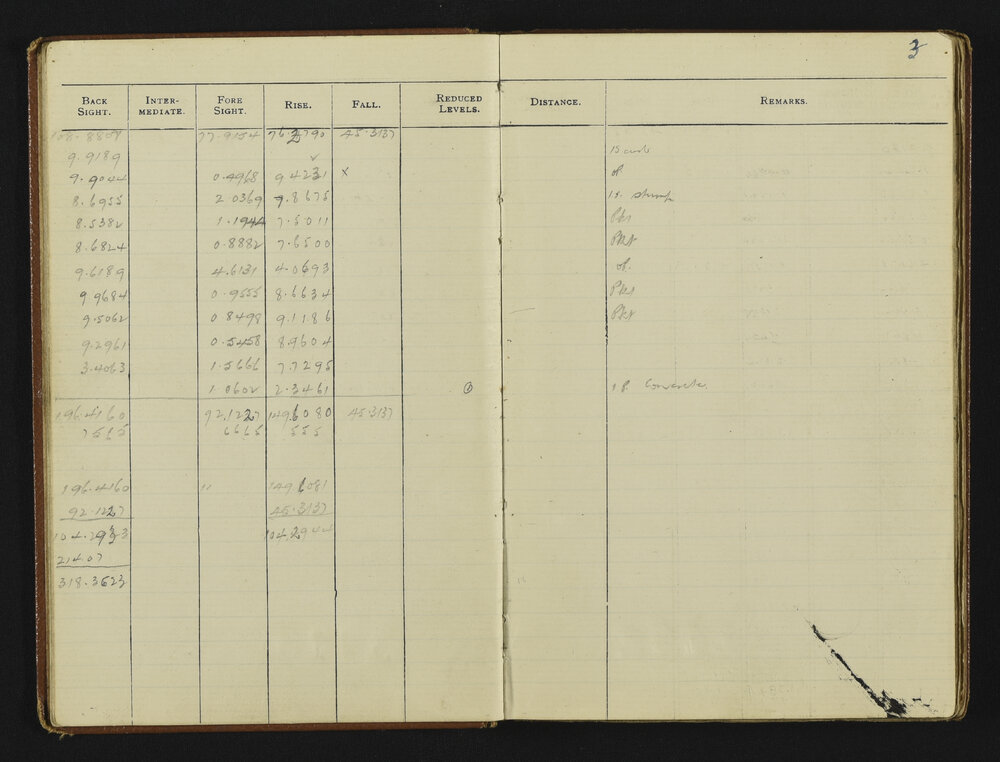 3
BACK SIGHT. INTER-MEDIATE. FORE SIGHT. RISE. FALL. REDUCED LEVELS. DISTANCE. REMARKS.
108.8808 77.9154 76.2790 45.3137
9.9189
9.9044 0.4968 9.4221 x
8.6955 2.0369 7.8675 stump
8.5382 1.1944 7.5011
8.6824 0.8882 7.6500
9.6189 4.6131 4.0693
9.9684 0.9555 8.6634
9.5062 0.8498 9.1186
9.2961 0.5458 8.9604
3.4063 1.5666 7.7295
1.0602 2.3461 Concrete
196.4160 92.1227 149.6080 45.3137
7565 6665 555
196.4160 149.6081
92.1227 45.3137
104.2933 104.2944
214.07
318.3623